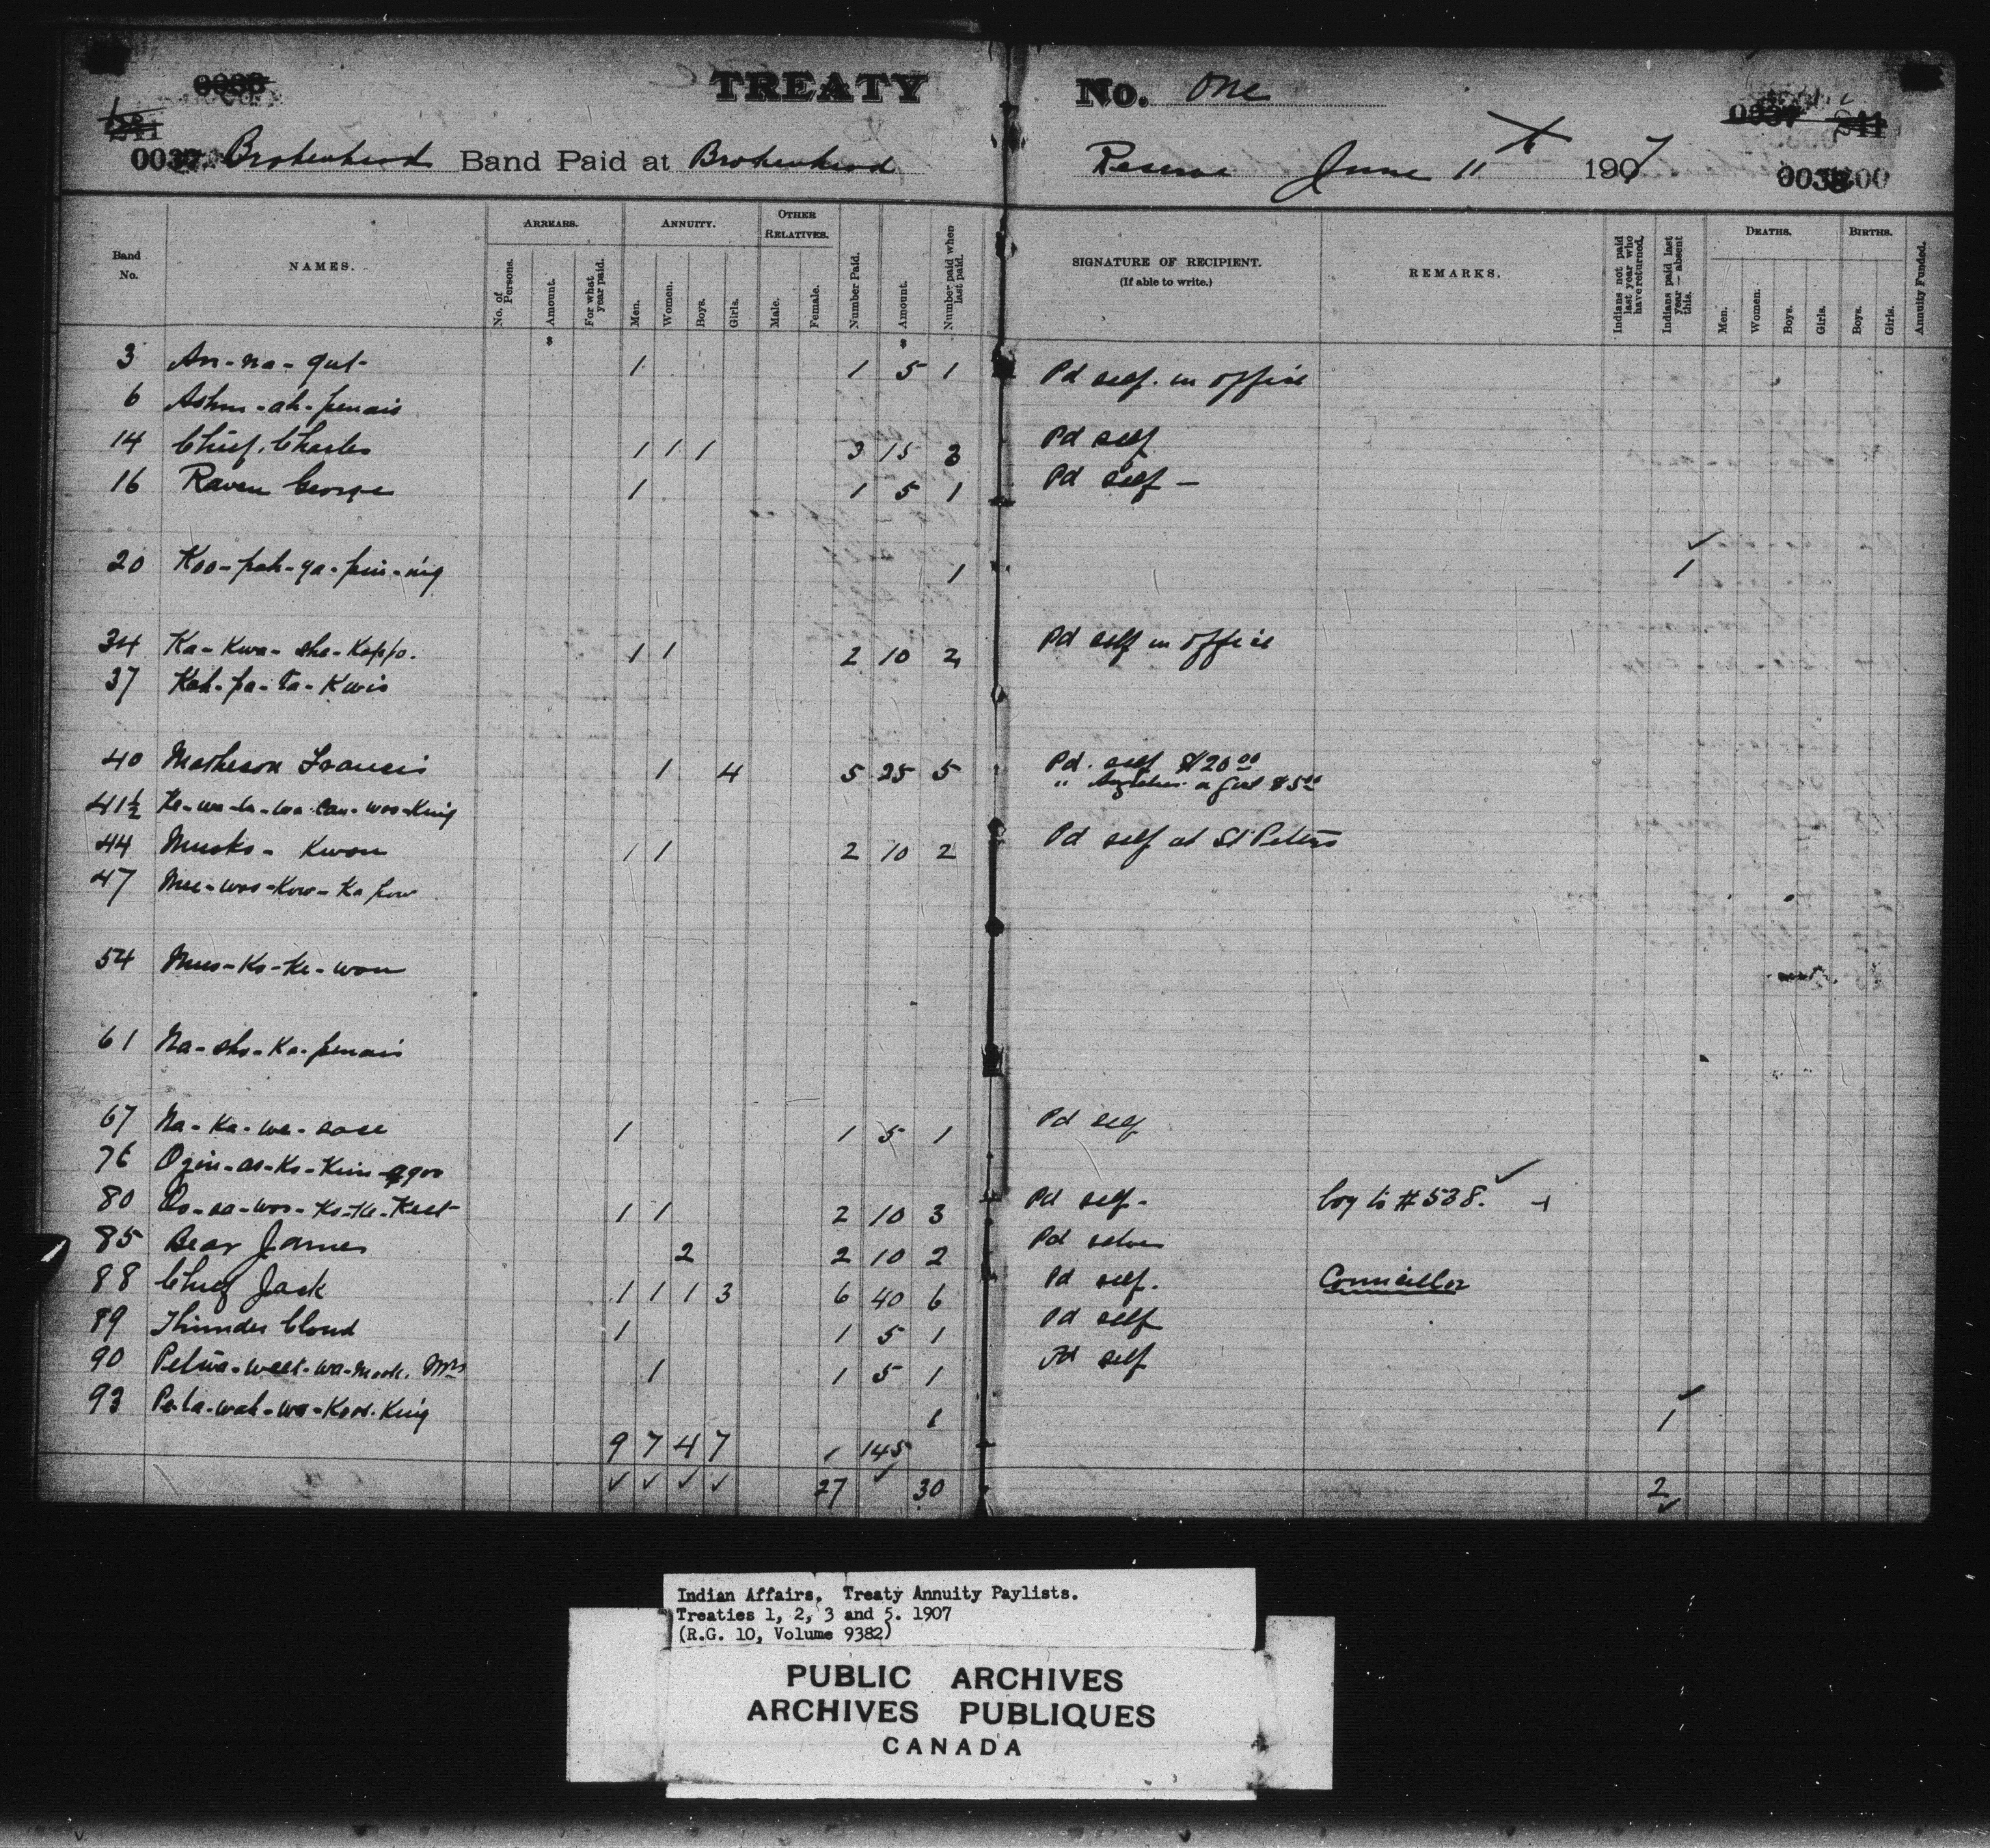 TREATY No. One
Brokenhead Band Paid at Brokenhead Reserve June 11 1907
Band No.
NAMES.
ARREARS.
No. of Persons.
Amount.
For what year paid.
ANNUITY.
Men.
Women.
Boys.
Girls.
OTHER RELATIVES.
Male.
Female.
Number Paid.
Amount.
Number paid when last paid.
SIGNATURE OF RECIPIENT.
(If able to write.)
REMARKS.
Indians not paid last year who have returned.
Indians paid last year — absent this.
DEATHS.
Men.
Women.
Boys.
Girls.
BIRTHS.
Boys.
Girls.
Annuity Funded.
3 An-na-qut- 1 1 5 1 Pd self. in office
6 Ashm-ah-penais
14 Chief. Charles 1 1 1 3 15 3 Pd self
16 Raven George 1 1 5 1 Pd self —
20 Koo-pah-ga-pin-nig 1 1
34 Ka-Kwa-sha-Kappo. 1 1 2 10 2 Pd self in office
37 Kah-pa-ta-Kwis
40 Matheson Francis 1 4 5 25 5 Pd. self $20 00
" a girl $5 00
41½
44 Musko-Kwon 1 1 2 10 2 Pd self at St Peters
47 Mee-woo-Kow-Ka pow
54 Mus-Ko-Ke-won
61 Na-sho-Ka-penais
67 Na-Ka-we-sase 1 1 5 1 Pd self
76 Ozin-as-Ko-Kin-agoo
80 Os-sa-woo-Ko-Ke-Keet 1 1 2 10 3 Pd self. boy to #538.
85 Bear James 2 2 10 2 Pd selves
88 Chief Jack 1 1 1 3 6 40 6 Pd self. Councillor
89 Thunder Cloud 1 1 5 1 Pd self
90 Mrs 1 1 5 1 Pd self
93 Pe-ta-wah-wa-Koos-King 1 1
9 7 4 7 1 145
27 30 2
Indian Affairs. Treaty Annuity Paylists.
Treaties 1, 2, 3 and 5. 1907
(R.G. 10, Volume 9382)
PUBLIC ARCHIVES
ARCHIVES PUBLIQUES
CANADA